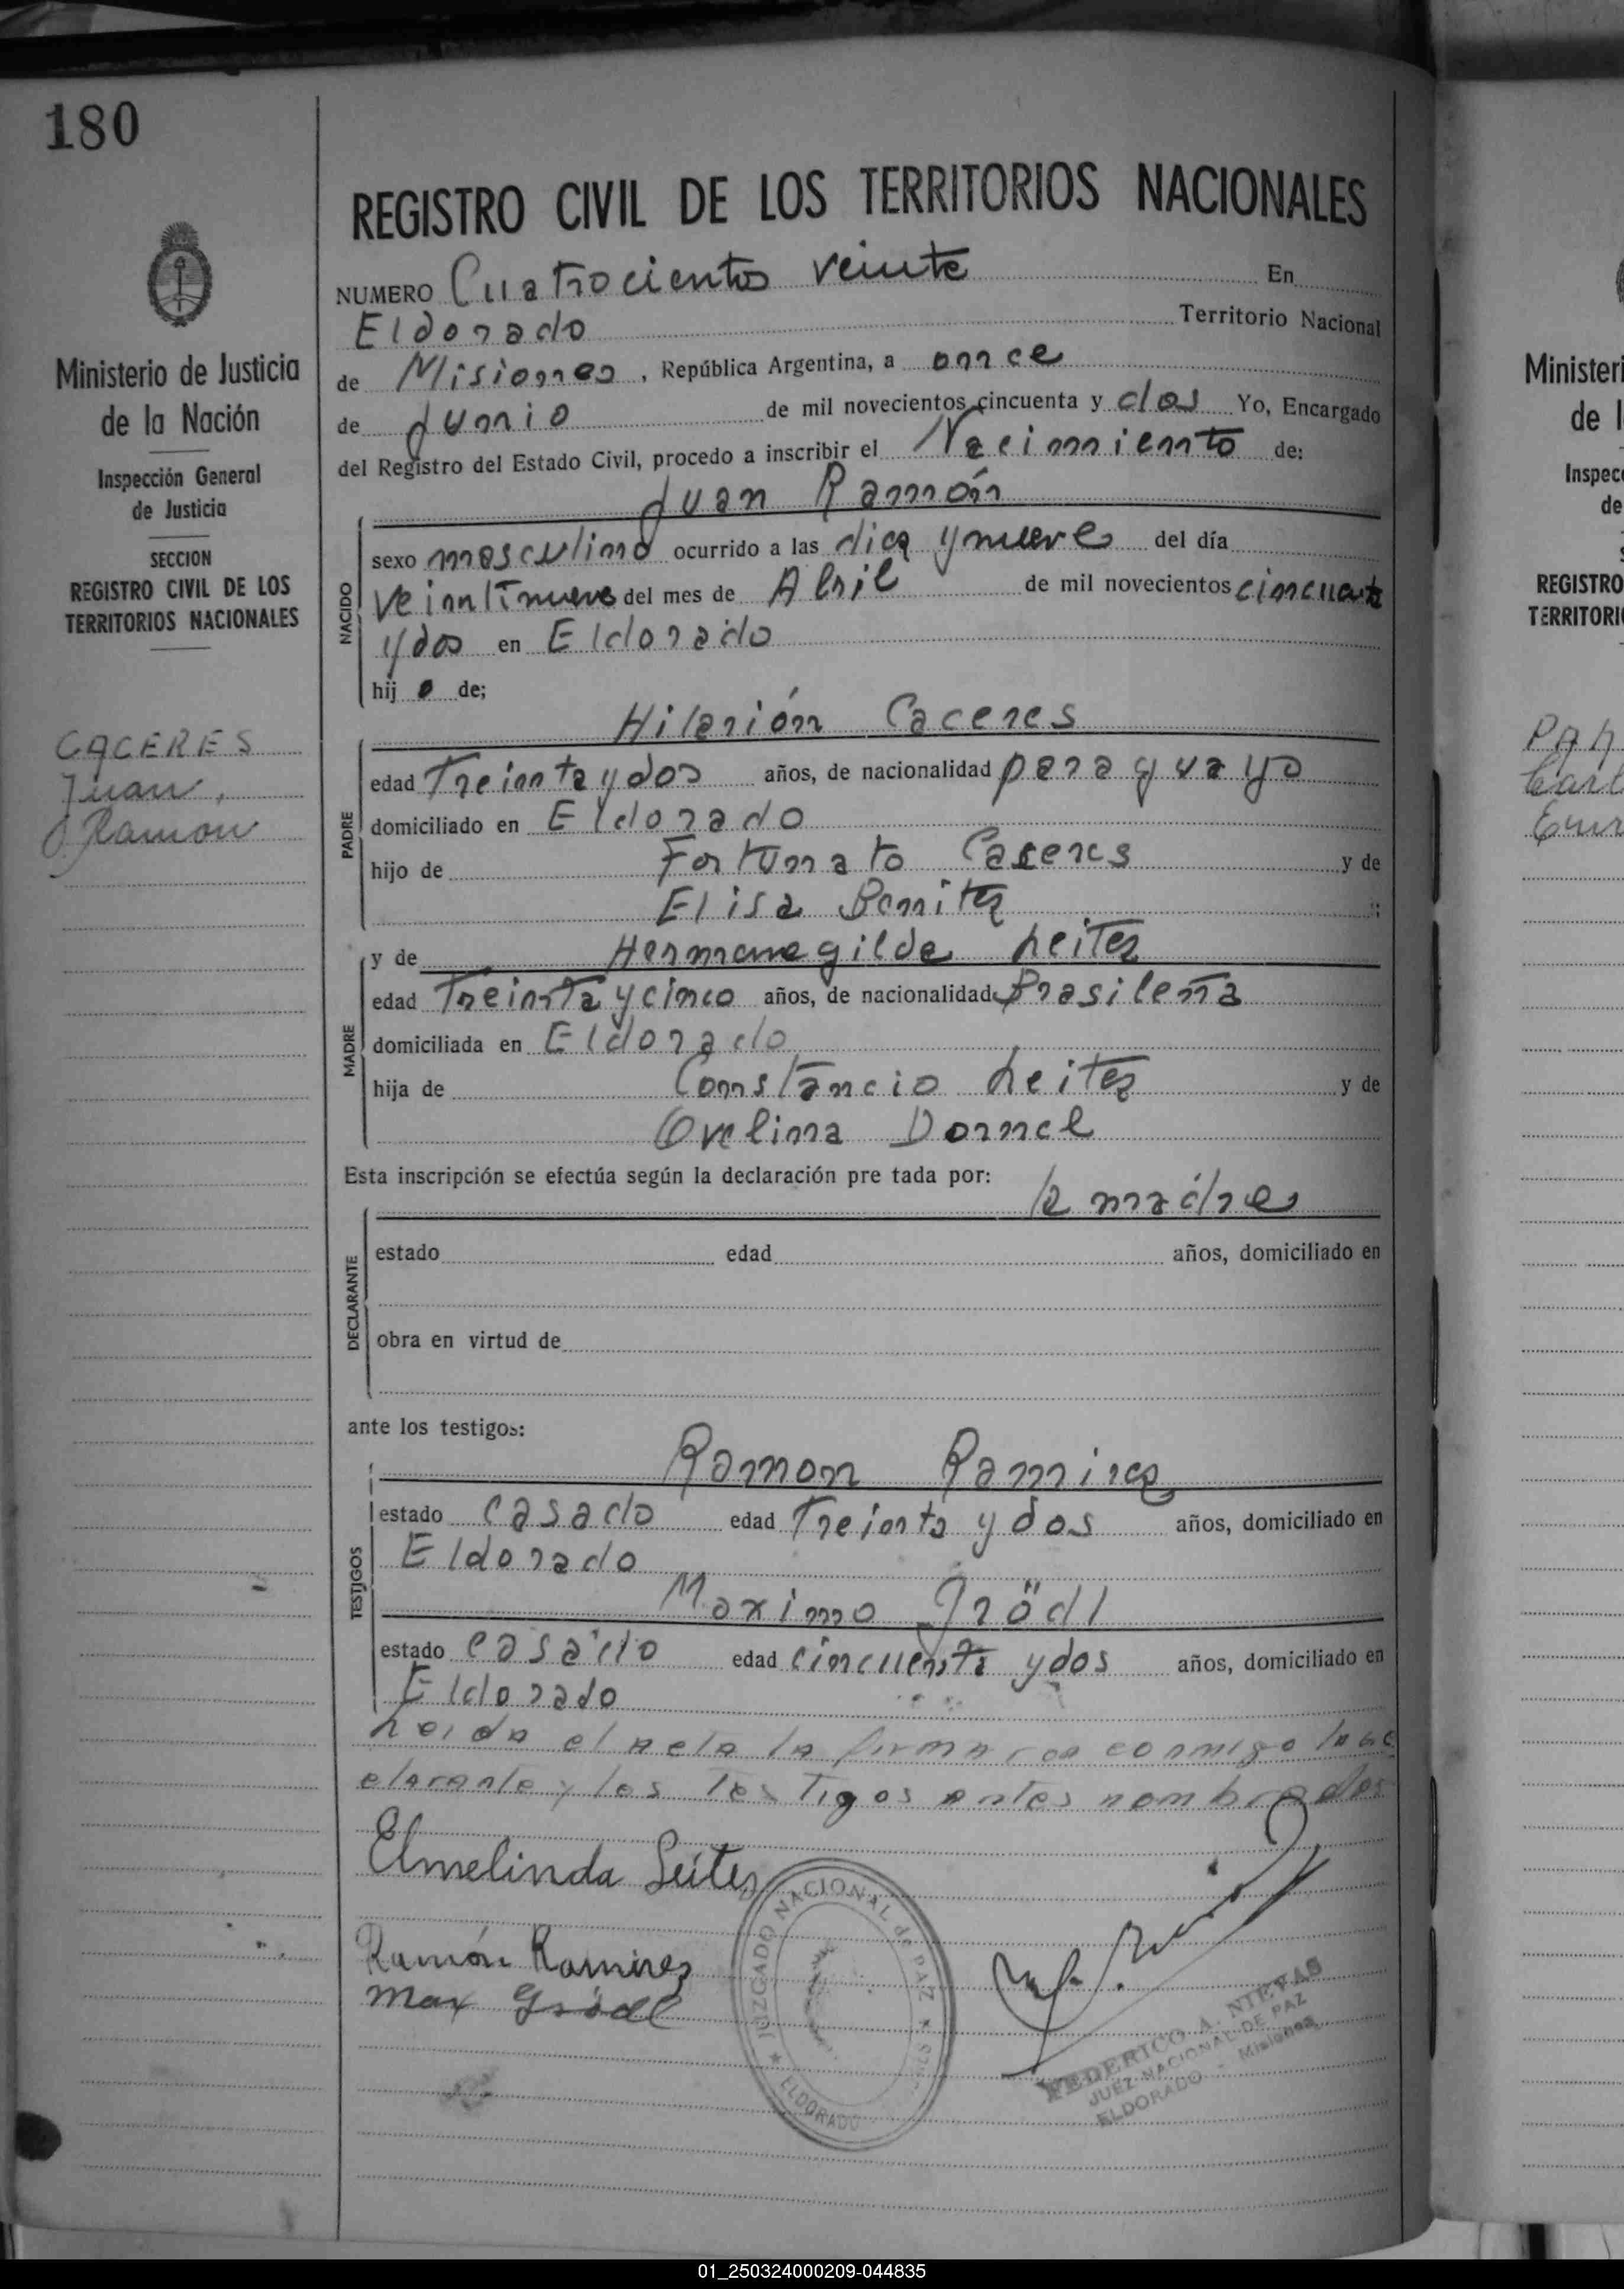 180
REGISTRO CIVIL DE LOS TERRITORIOS NACIONALES
Ministerio de Justicia
de la Nación
Inspección General
de Justicia
SECCION
REGISTRO CIVIL DE LOS
TERRITORIOS NACIONALES
CACERES
Juan,
Ramon
NUMERO Cuatrocientos veinte En
Eldorado Territorio Nacional
de Misiones, República Argentina, a once
de Junio de mil novecientos cincuenta y dos Yo, Encargado
del Registro del Estado Civil, procedo a inscribir el Nacimiento de:
Juan Ramón
NACIDO
sexo masculino ocurrido a las diez y nueve del día
veintinueve del mes de Abril de mil novecientos cincuenta
y dos en Eldorado
hij o de;
Hilarión Caceres
PADRE
edad Treinta y dos años, de nacionalidad paraguayo
domiciliado en Eldorado
hijo de Fortunato Caceres y de
Elisa Benitez
y de Hermenegilda Leitez
MADRE
edad Treinta y cinco años, de nacionalidad Brasileña
domiciliada en Eldorado
hija de Constancio Leitez y de
Ovelina Dornel
Esta inscripción se efectúa según la declaración pre tada por:
la madre
DECLARANTE
estado edad años, domiciliado en
obra en virtud de
ante los testigos:
Ramon Ramirez
TESTIGOS
estado casado edad Treinta y dos años, domiciliado en
Eldorado
Maximo Grödl
estado casado edad cincuenta y dos años, domiciliado en
Eldorado
Leida el acta la firmaron conmigo la de
clarante y los testigos antes nombrados
Elmelinda Leites
Ramón Ramirez
Max Grödl
JUZGADO NACIONAL de PAZ
ELDORADO
FEDERICO A. NIEVAS
JUEZ NACIONAL DE PAZ
ELDORADO - Misiones
Ministeri
de l
Inspec
de
REGISTRO
TERRITORI
01_250324000209-044835